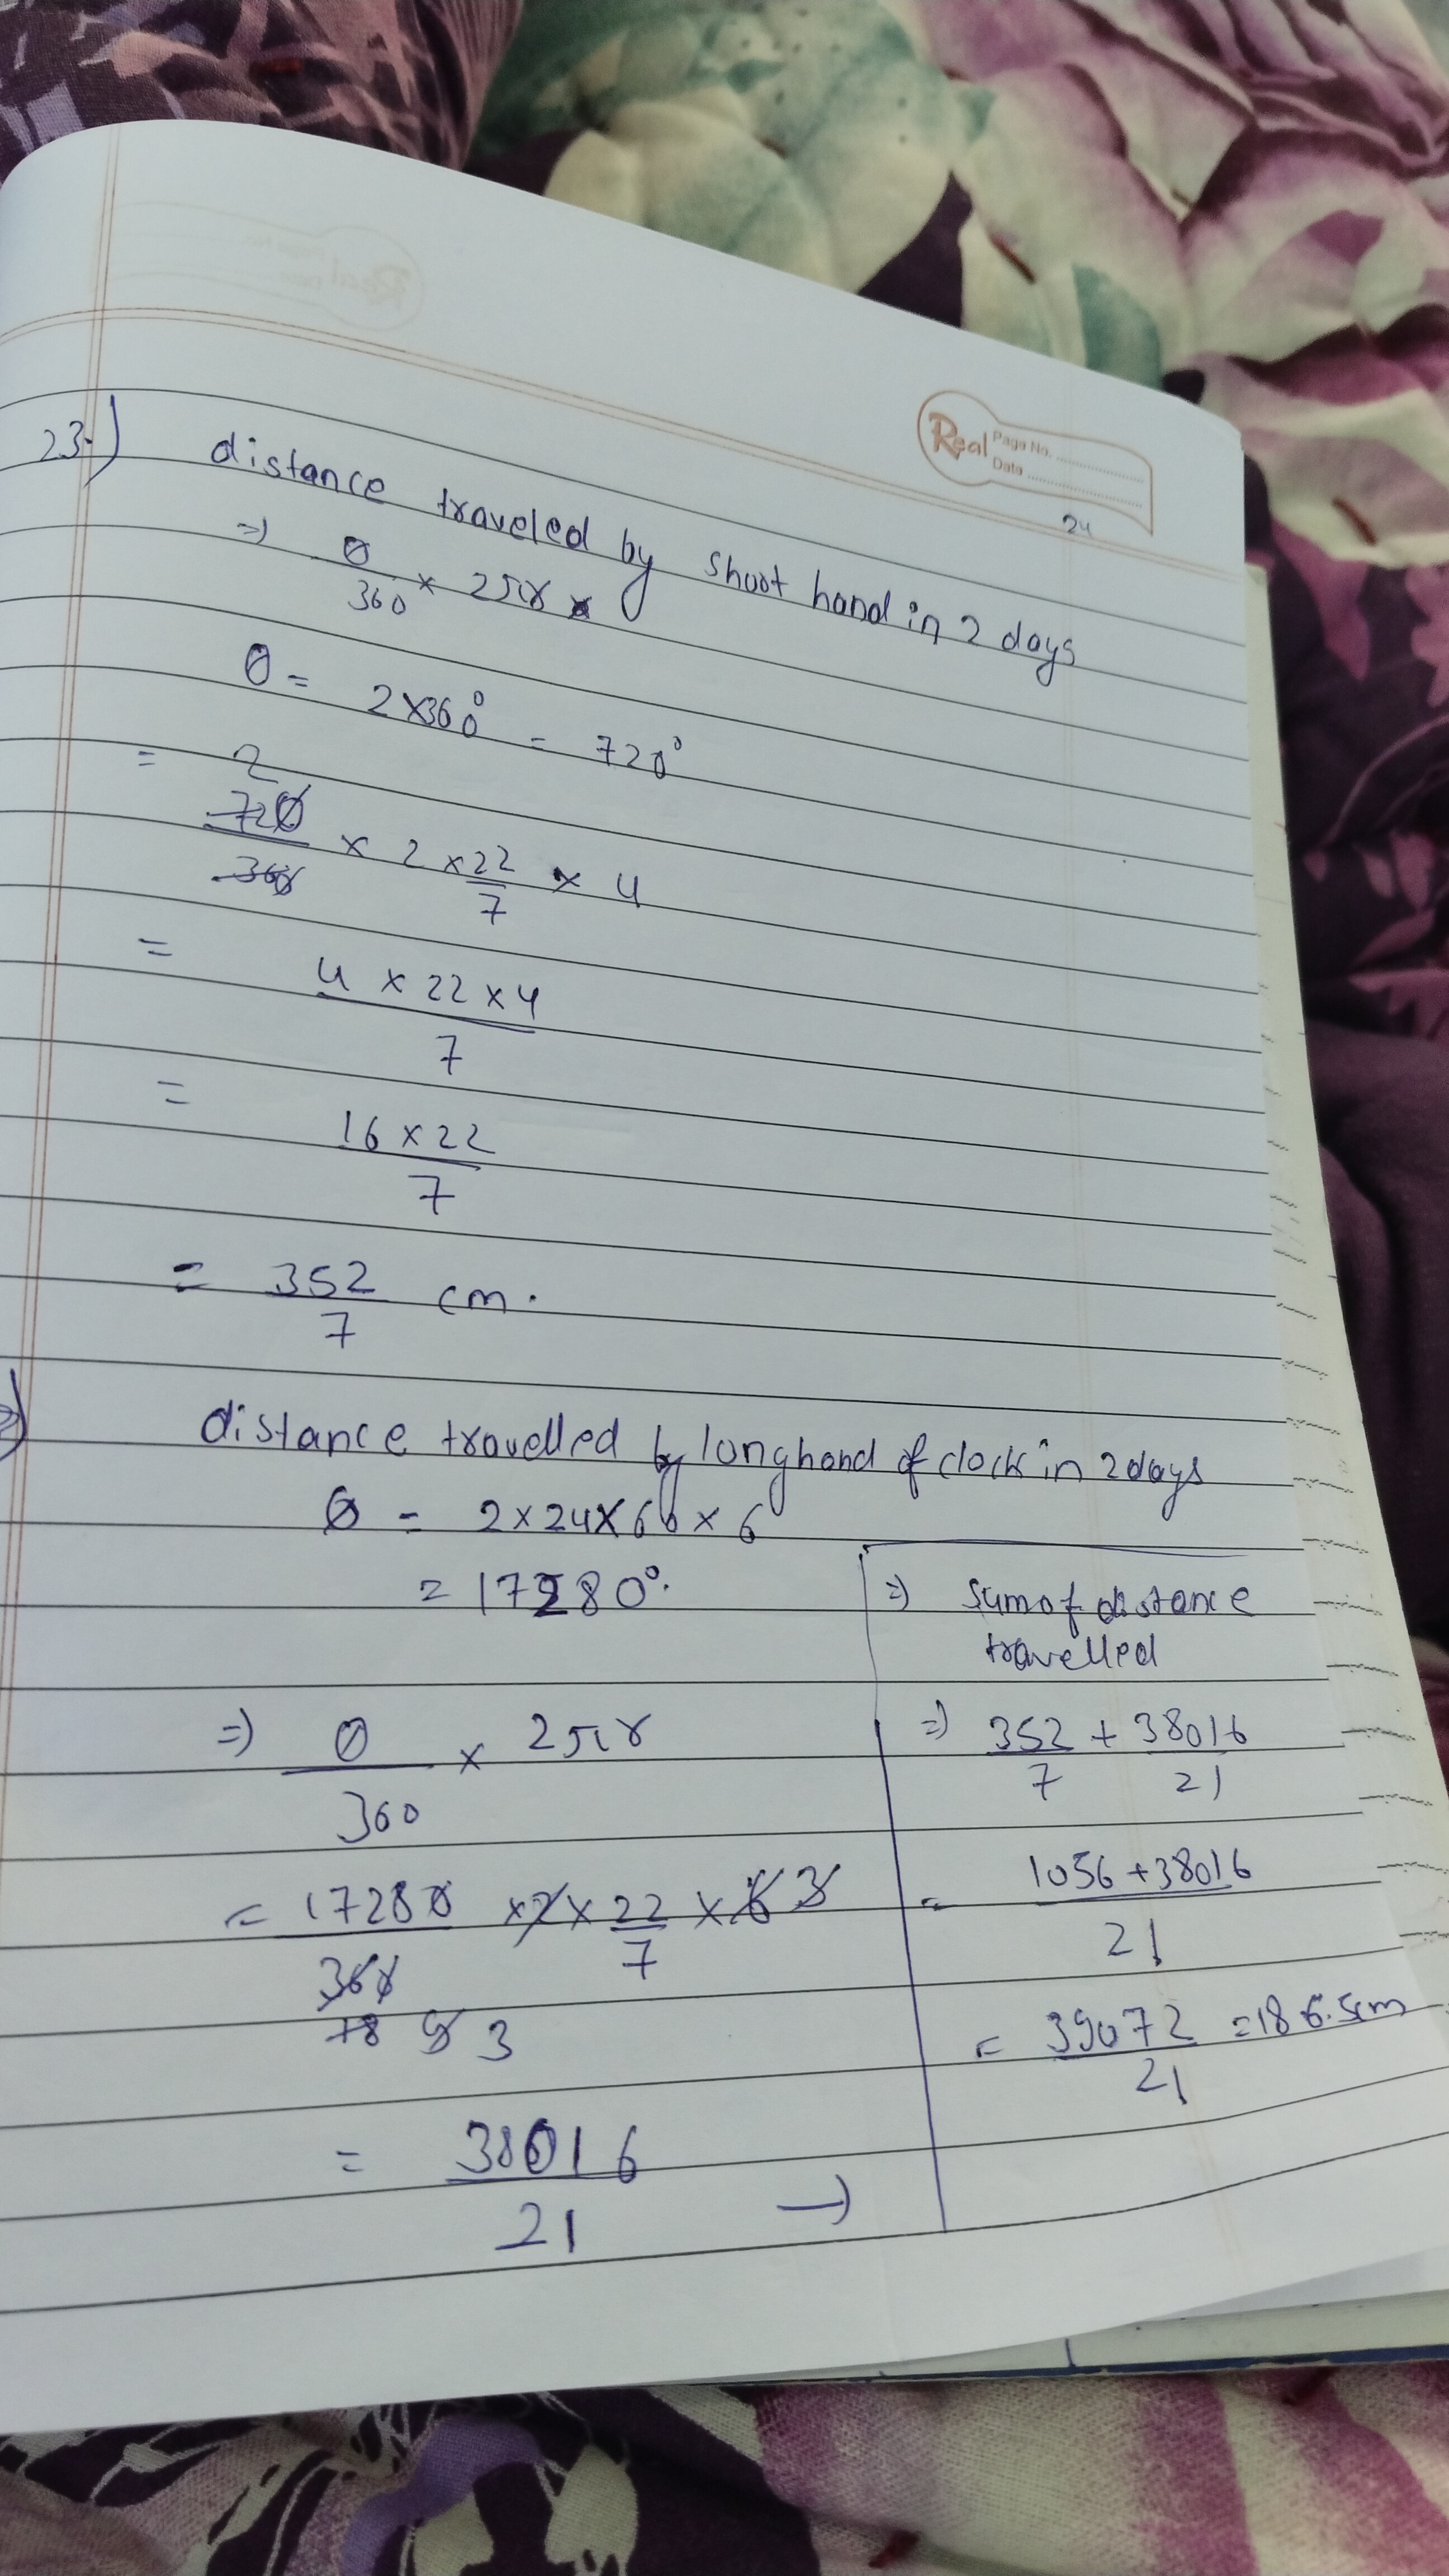 Real Page No. ..................
Date ..................
24
23.) distance traveled by short hand in 2 days
⇒ θ/360 × 2πr ×
θ = 2×360° = 720°
= 2
720/360 × 2 × 22/7 × 4
= 4 × 22 × 4 / 7
= 16 × 22 / 7
= 352/7 cm.
distance travelled by long hand of clock in 2 days
θ = 2×24×60×6
= 17280°.
⇒ θ/360 × 2πr
= 17280/360 × 2 × 22/7 × 6 3
18 9 3
= 38016/21 →
⇒ Sum of distance
travelled
⇒ 352/7 + 38016/21
= 1056 + 38016 / 21
= 39072/21 = 186.5cm